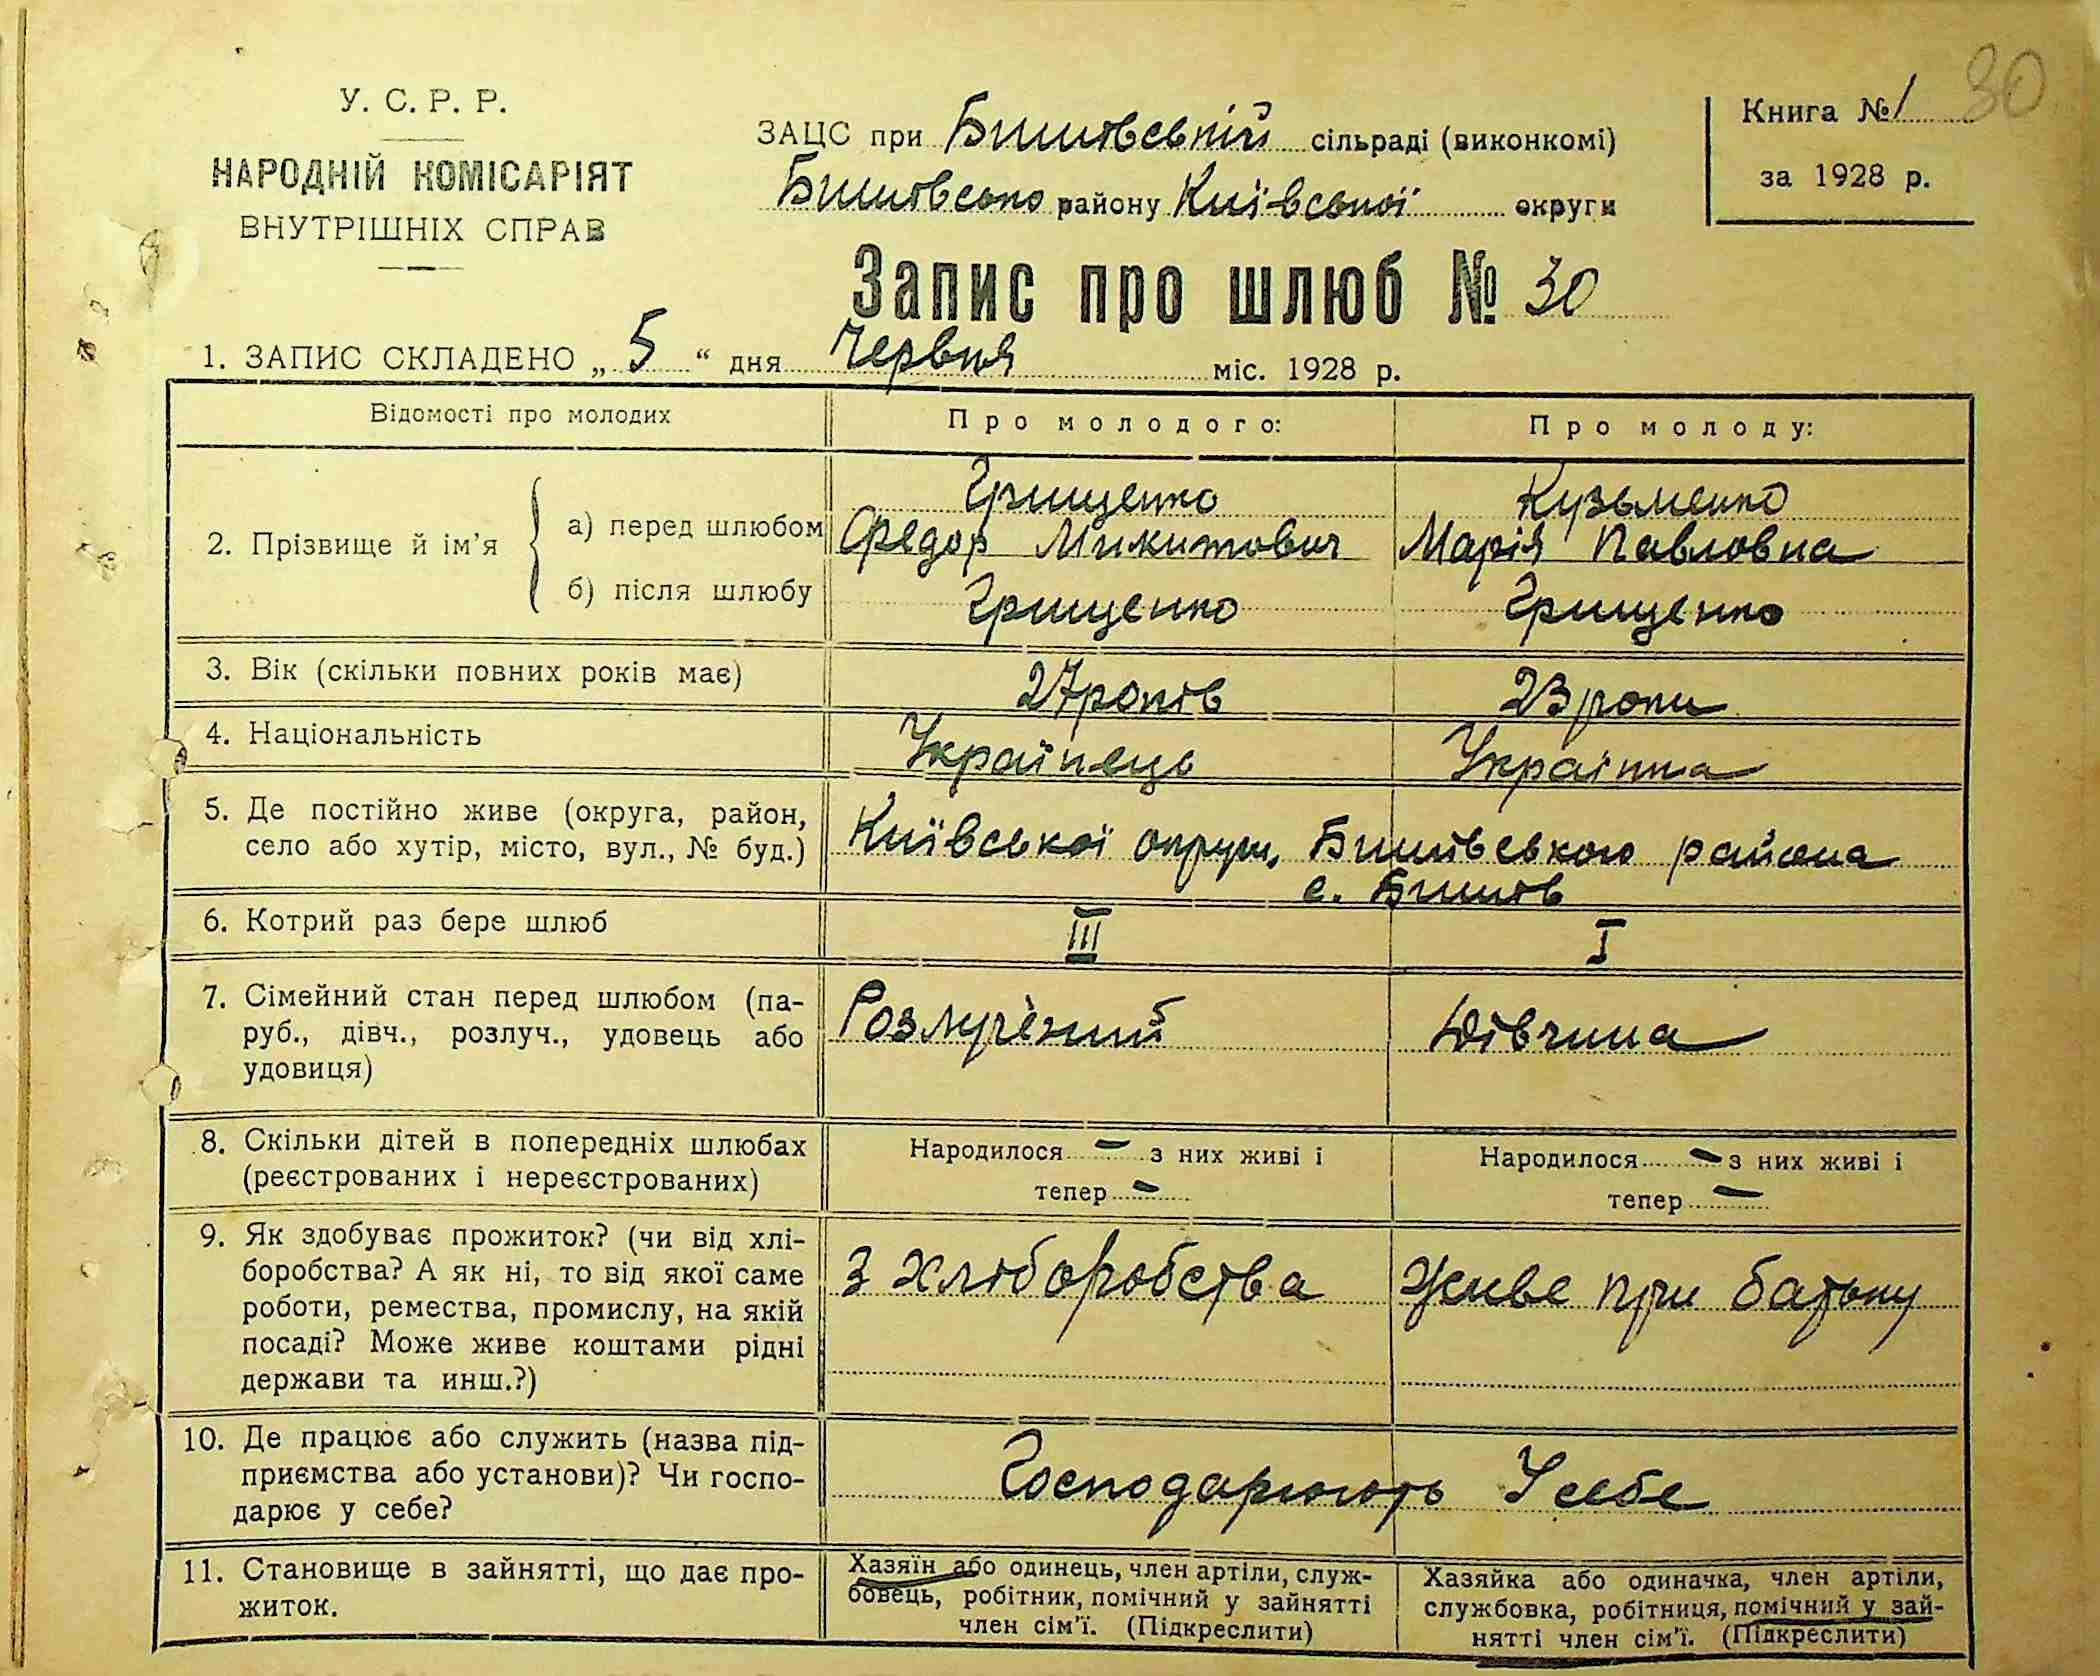 30
У. С. Р. Р.
НАРОДНІЙ КОМІСАРІЯТ
ВНУТРІШНІХ СПРАВ
ЗАЦС при Бишівській сільраді (виконкомі)
Бишівсько району Київської округи
Книга № 1
за 1928 р.
Запис про шлюб № 30
1. ЗАПИС СКЛАДЕНО „ 5 “ дня Червня міс. 1928 р.
Відомості про молодих
Про молодого:
Про молоду:
2. Прізвище й ім’я
а) перед шлюбом
б) після шлюбу
Грищенко
Федор Микитович
Грищенко
Кузьменко
Марія Павловна
Грищенко
3. Вік (скільки повних років має)
27 років
23 роки
4. Національність
Українець
Українка
5. Де постійно живе (округа, район,
село або хутір, місто, вул., № буд.)
Київської округи, Бишівського района
с. Бишів
6. Котрий раз бере шлюб
III
I
7. Сімейний стан перед шлюбом (па-
руб., дівч., розлуч., удовець або
удовиця)
Розлучений
Дівчина
8. Скільки дітей в попередніх шлюбах
(реєстрованих і нереєстрованих)
Народилося – з них живі і
тепер –
Народилося – з них живі і
тепер –
9. Як здобуває прожиток? (чи від хлі-
боробства? А як ні, то від якої саме
роботи, ремества, промислу, на якій
посаді? Може живе коштами рідні
держави та инш.?)
З хліборобства
Живе при батьку
10. Де працює або служить (назва під-
приємства або установи)? Чи госпо-
дарює у себе?
Господарюють У себе
11. Становище в зайнятті, що дає про-
житок.
Хазяїн або одинець, член артіли, служ-
бовець, робітник, помічний у зайнятті
член сім’ї. (Підкреслити)
Хазяйка або одиначка, член артіли,
службовка, робітниця, помічний у зай-
нятті член сім’ї. (Підкреслити)